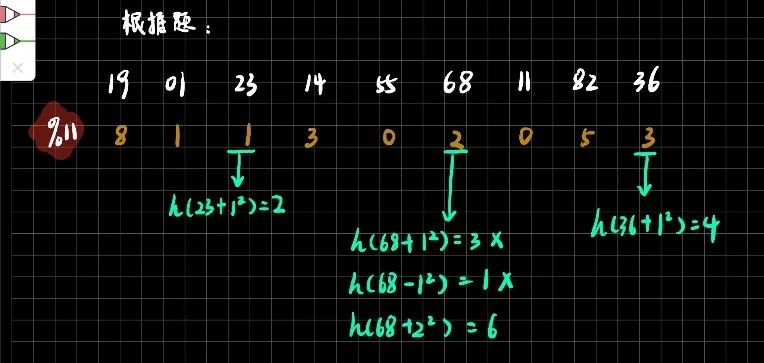 根据题：
19 01 23 14 55 68 11 82 36
%11 8 1 1 3 0 2 0 5 3
h(23+1²)=2
h(68+1²)=3 ×
h(68-1²)=1 ×
h(68+2²)=6
h(36+1²)=4